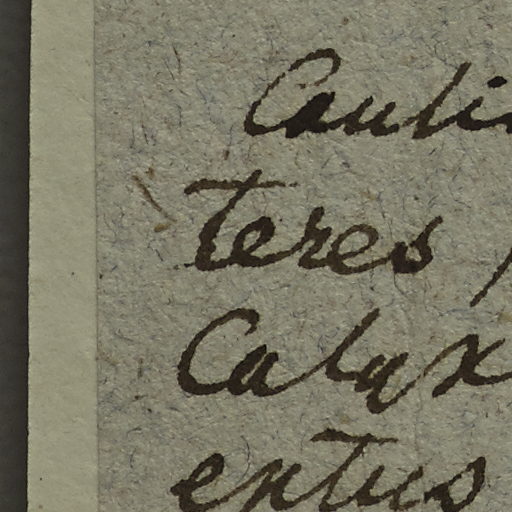 Cauli
teres
Calyx
entus